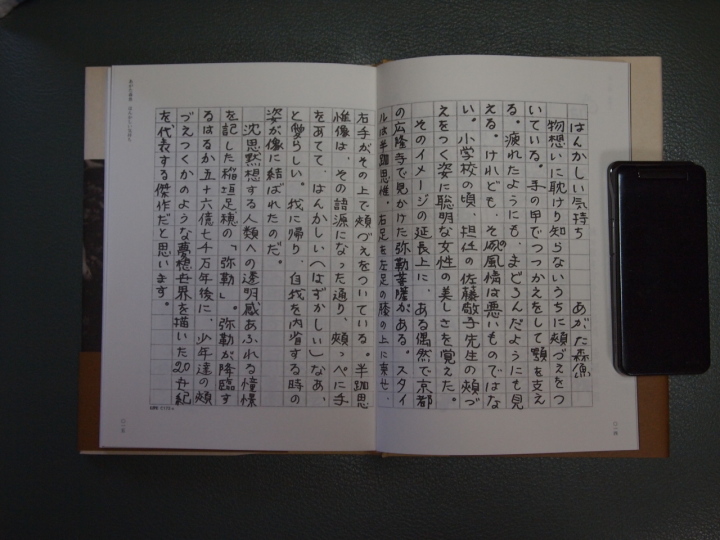 はんかしい気持ち　あがた森魚
物想いに耽けり知らないうちに頬づえをつ
いている。手の甲でつっかえをして顎を支え
る。疲れたようにも、まどろんだようにも見
える。けれども、その風情は悪いものではな
い。小学校の頃、担任の佐藤敬子先生の頬づ
えをつく姿に聡明な女性の美しさを覚えた。
そのイメージの延長上に、ある偶然で京都
の広隆寺で見かけた弥勒菩薩がある。スタイ
ルは半跏思惟、右足を左足の膝の上に乗せ、
右手がその上で頬づえをついている。半跏思
惟像は、その語源になった通り、頬っぺに手
をあてて、はんかしい（はずかしい）なあ、
と愛らしい。我に帰り、自我を内省する時の
姿が像に結ばれたのだ。
沈思黙想する人類への透明感あふれる憧憬
を記した稲垣足穂の「弥勒」。弥勒が降臨す
るはるか五十六億七千万年後に、少年達の頬
づえつくかのような夢想世界を描いた20世紀
を代表する傑作だと思います。